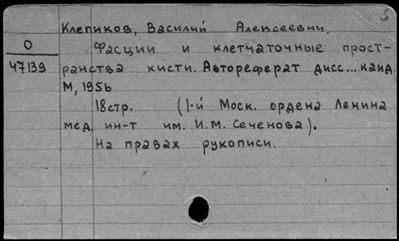 3
Клепиков, Василий Алексеевич.
О
47139
Фасции и клетчаточные прост-
ранства кисти. Автореферат дисс... канд.
М, 1956
18стр. (1-й Моск. ордена Ленина
мед. ин-т им. И.М. Сеченова).
На правах рукописи.